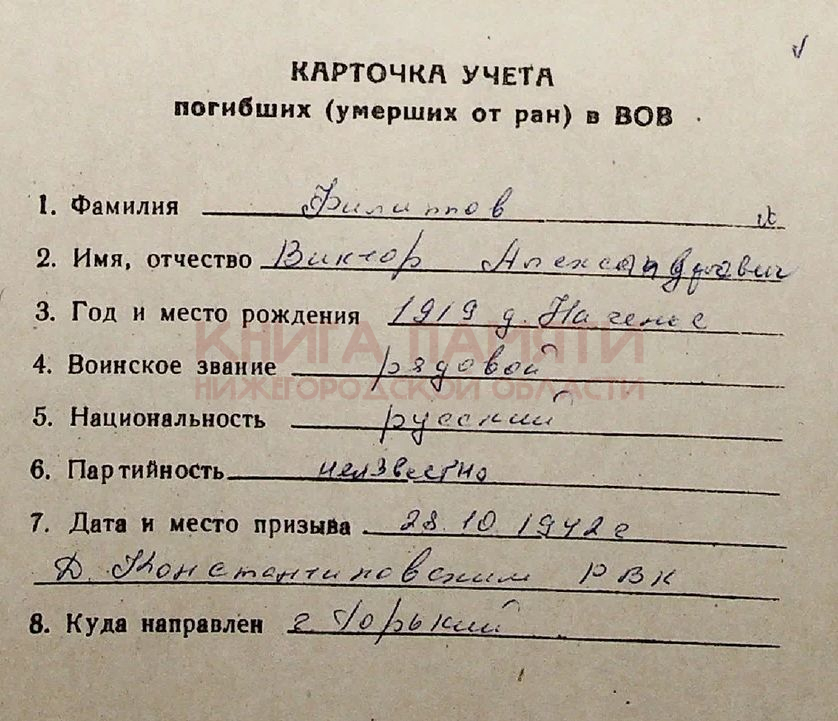 КАРТОЧКА УЧЕТА
погибших (умерших от ран) в ВОВ
1. Фамилия Филиппов
2. Имя, отчество Виктор Александрович
3. Год и место рождения 1919 д.
КНИГА ПАМЯТИ
4. Воинское звание рядовой
НИЖЕГОРОДСКОЙ ОБЛАСТИ
5. Национальность русский
6. Партийность неизвестно
7. Дата и место призыва 28.10.1942 г
Д. Константиновским РВК
8. Куда направлен г Горький